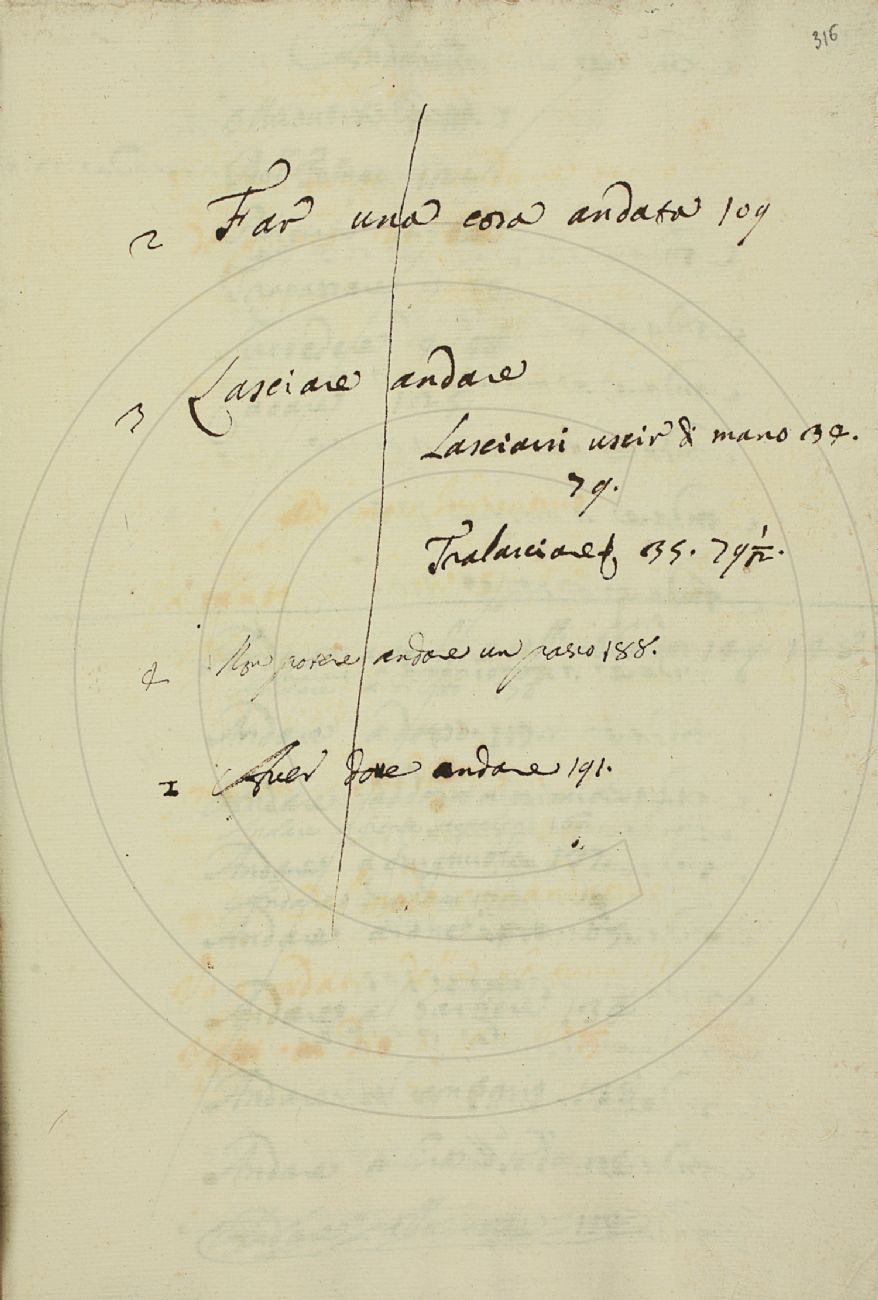 316
2 Far una cosa andata 109
3 Lasciare andare
Lasciarsi uscir di mano 34.
79.
Tralasciare 35. 79 1/2.
4 Non potere andare un passo 188.
1 Aver dove andare 191.